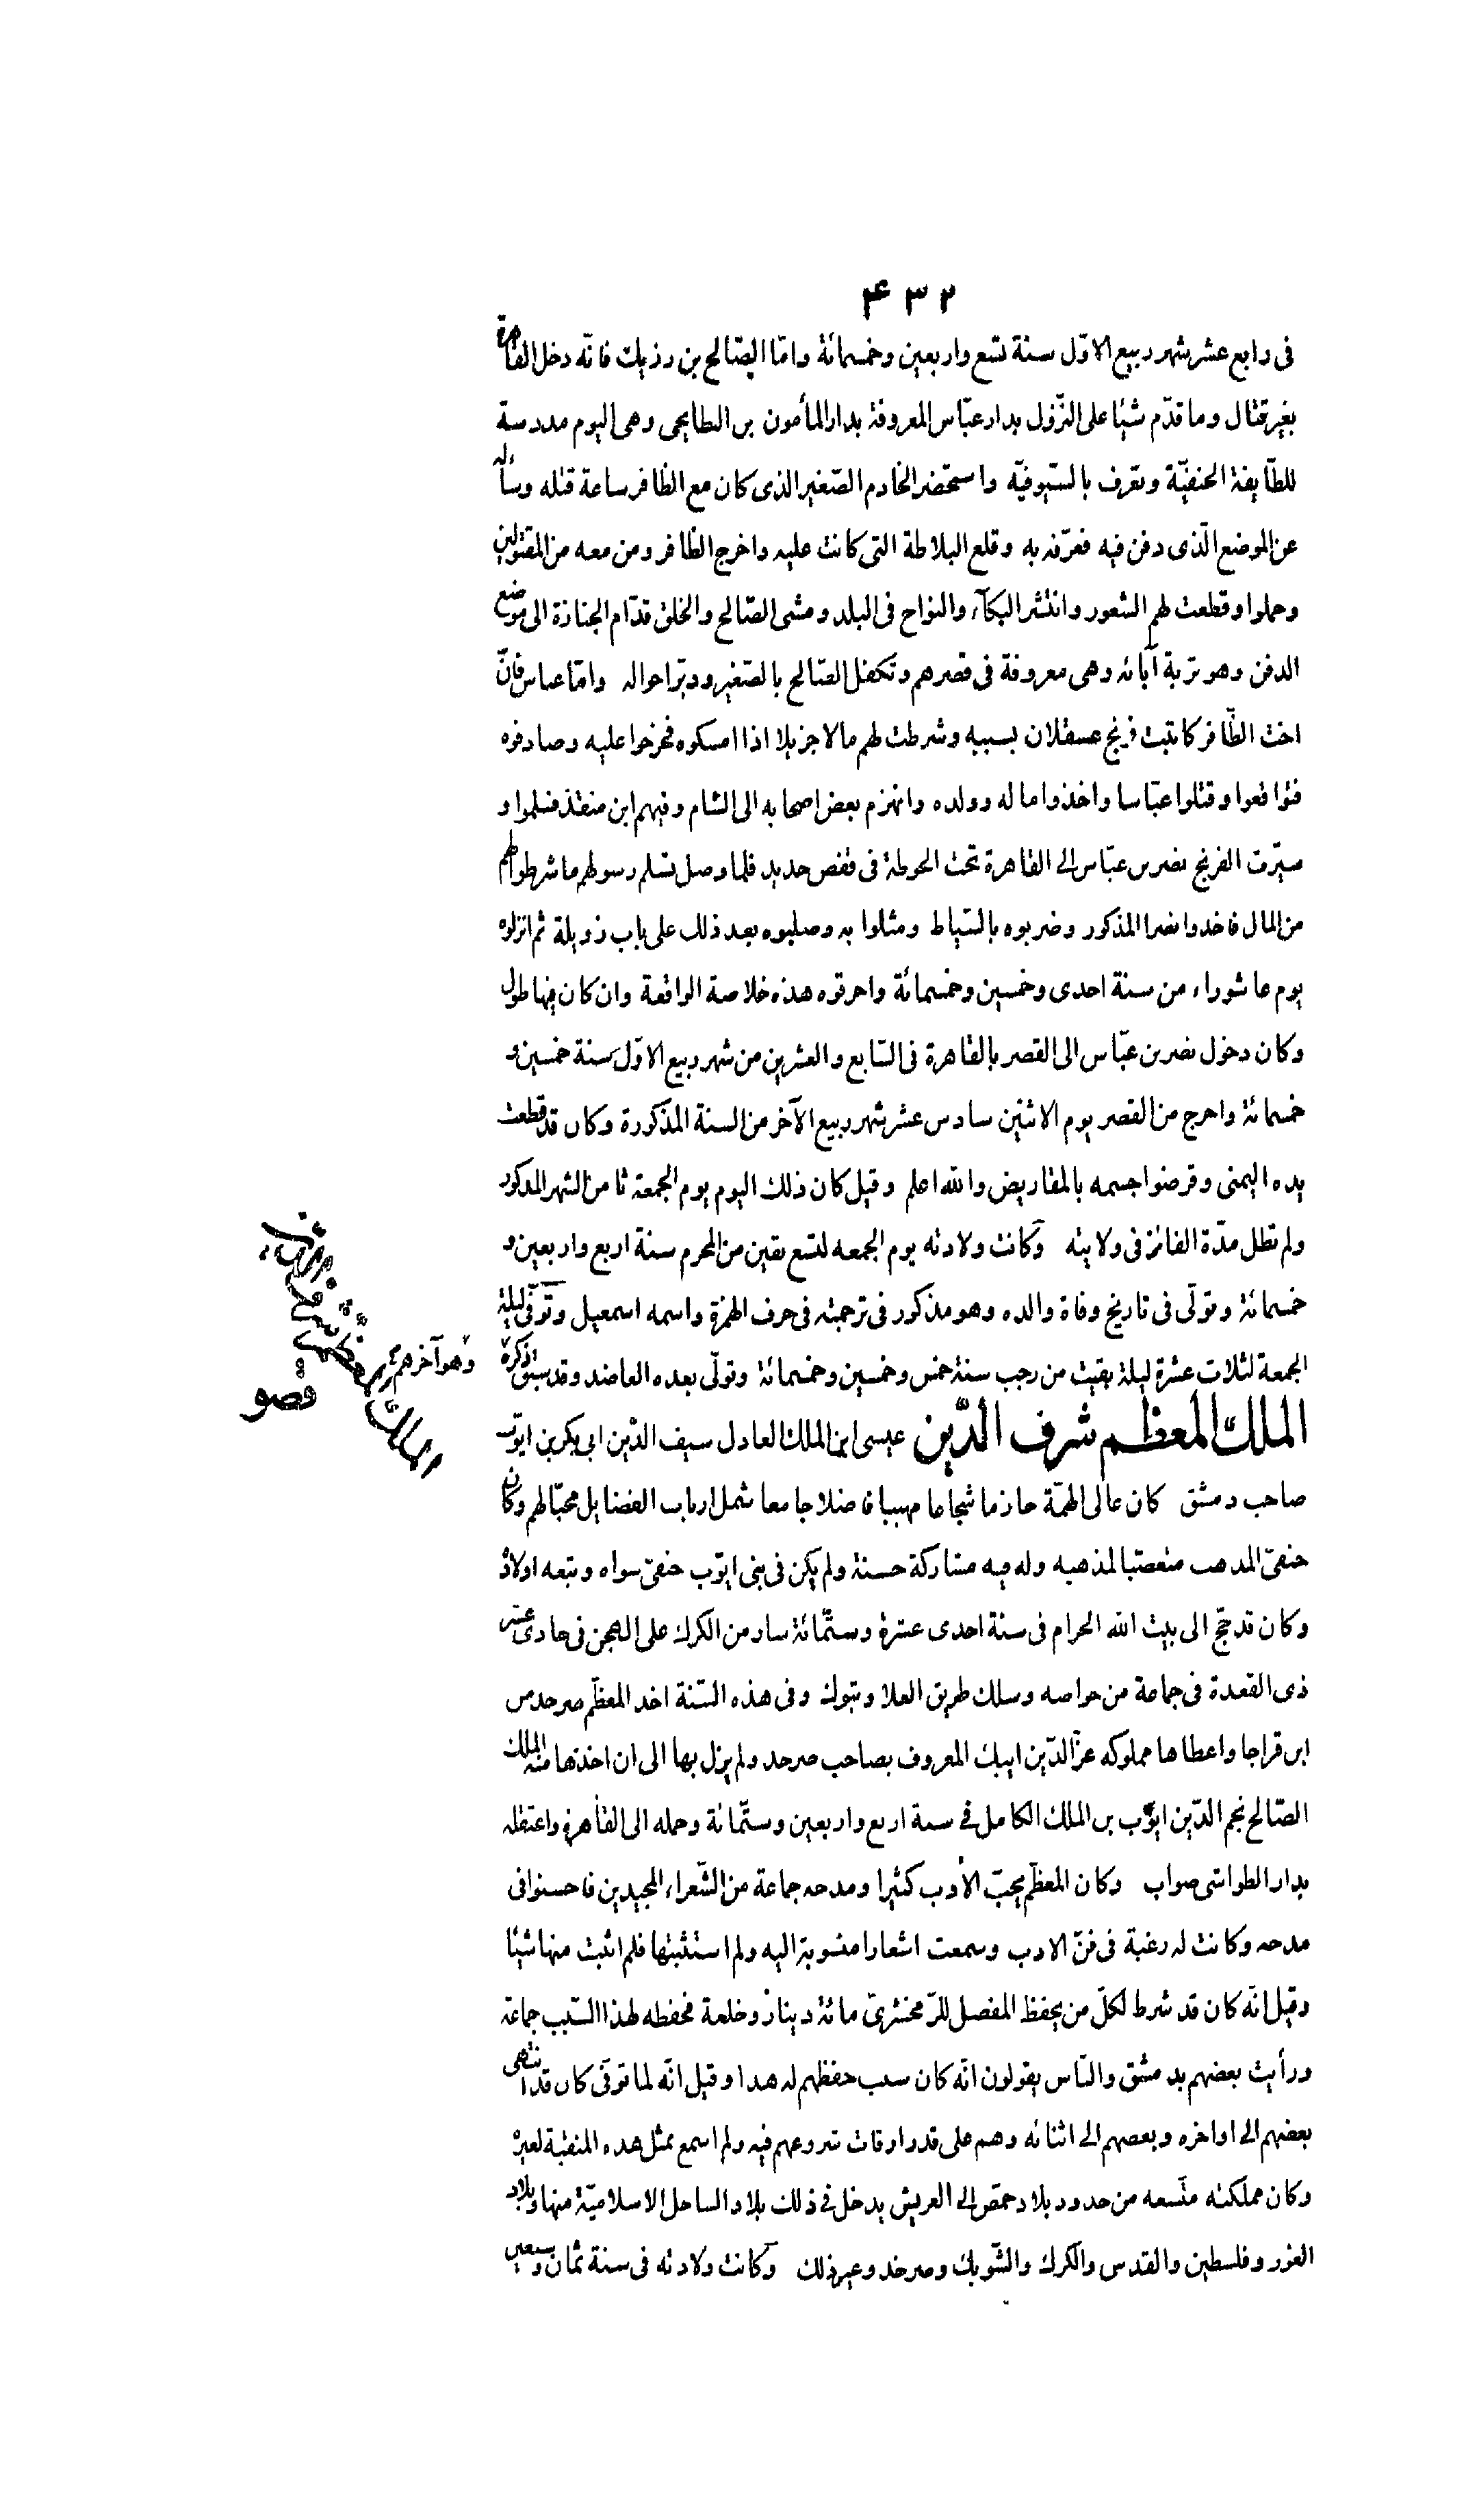 ۴۳۲
فى رابع عشر شهر ربيع الاوّل سنة تسع واربعين وخمسمائة وامّا الصّالح بن رزيك فانّه دخل القاهرة
بغير قتال وما قدّم شيئا على النّزول بدار عبّاس المعروفة بدار المأمون بن البطايحى وهى اليوم مدرسة
للطّايفة الحنفيّة وتعرف بالسّيوفيّه واستحضر الخادم الصّغير الذى كان مع الظافر ساعة قتله وسأله
عن الموضع الّذى دفن فيه فعرّفه به وقلع البلاطة التى كانت عليه واخرج الظافر ومن معه من المقتولين
وحملوا وقطعت لهم الشعور وانتشر البكآء والنواح فى البلد ومشى الصّالح والخلق قدّام الجنازة الى موضع
الدفن وهو تربة آبائه وهى معروفة فى قصرهم وتكفل الصّالح بالصّغير ودبّر احواله وامّا عباس فانّ
اخت الظّافر كاتبت فرنج عسقلان بسببه وشرطت لهم مالا جزيلا اذا امسكوه فخرجوا عليه وصادفوه
فتواقعوا وقتلوا عبّاسا واخذوا ماله وولده وانهزم بعض اصحابه الى الشام وفيهم ابن منقذ فسلموا و
سيّرت الفرنج نصر بن عبّاس الى القاهرة تحت الحوطة فى قفص حديد فلما وصل تسلم رسولهم ما شرطوا لهم
من المال فاخذوا نصرا المذكور وضربوه بالسّياط ومثلوا به وصلبوه بعد ذلك على باب زويلة ثم انزلوه
يوم عاشوراء من سنة احدى وخمسين وخمسمائة واحرقوه هذه خلاصة الواقعة وان كان فيها طول
وكان دخول نصر بن عبّاس الى القصر بالقاهرة فى السّابع والعشرين من شهر ربيع الاوّل سنة خمسين و
خمسمائة واخرج من القصر يوم الاثنين سادس عشر شهر ربيع الآخر من السنة المذكورة وكان قد قطعت
يده اليمنى وقرضوا جسمه بالمقاريض والله اعلم وقيل كان ذلك اليوم يوم الجمعة ثامن الشهر المذكور
ولم تطل مدّة الفائز فى ولايته وكانت ولادته يوم الجمعه لتسع بقين من المحرم سنة اربع واربعين و
خمسمائة وتولّى فى تاريخ وفاة والده وهو مذكور فى ترجمته فى حرف الهمزة واسمه اسمعيل وتوفّى ليلة
الجمعة لثلاث عشرة ليلة بقيت من رجب سنة خمس وخمسين وخمسمائة وتولّى بعده العاضد وقد سبق ذكره
وهو آخرهم
الملك المعظم شرف الدّين عيسى ابن الملك العادل سيف الدّين ابى بكر بن ايّوب
صاحب دمشق كان عالى الهمّة حازما شجاعا مهيبا فاضلا جامعا شمل ارباب الفضايل محبّا لهم وكان
حنفىّ المذهب متعصّبا لمذهبه وله فيه مشاركة حسنة ولم يكن فى بنى ايّوب حنفىّ سواه وتبعه اولاده
وكان قد حجّ الى بيت الله الحرام فى سنة احدى عشرة وستّمائة سار من الكرك على الهجن فى حادى عشر
ذى القعدة فى جماعة من خواصه وسلك طريق العلا وتبوك وفى هذه السّنة اخذ المعظّم صرخد من
ابن قراجا واعطاها مملوكه عزّ الدّين ايبك المعروف بصاحب صرخد ولم يزل بها الى ان اخذها منه الملك
الصّالح نجم الدّين ايّوب بن الملك الكامل فى سنة اربع واربعين وستّمائة وحمله الى القاهرة واعتقله
بدار الطواشى صواب وكان المعظّم يحبّ الأدب كثيرا ومدحه جماعة من الشّعراء المجيدين فاحسنوا فى
مدحه وكانت له رغبة فى فنّ الادب وسمعت اشعارا منسوبة اليه ولم استثبتها فلم اثبت منها شيئا
وقيل انّه كان قد شرط لكلّ من يحفظ المفصل للزّمخشرىّ مائة دينار وخلعة فحفظه لهذا السّبب جماعة
ورأيت بعضهم بدمشق والنّاس يقولون انّه كان سبب حفظهم له هذا وقيل انّه لما توفّى كان قد انتهى
بعضهم الى اواخره وبعضهم الى اثنائه وهم على قدر اوقات شروعهم فيه ولم اسمع بمثل هذه المنقبة لغيره
وكان مملكته متّسعه من حدود بلاد حمص الى العريش يدخل فى ذلك بلاد الساحل الاسلاميّة منها وبلاد
الغور وفلسطين والقدس والكرك والشّوبك وصرخد وغير ذلك وكانت ولادته فى سنة ثمان وسبعين